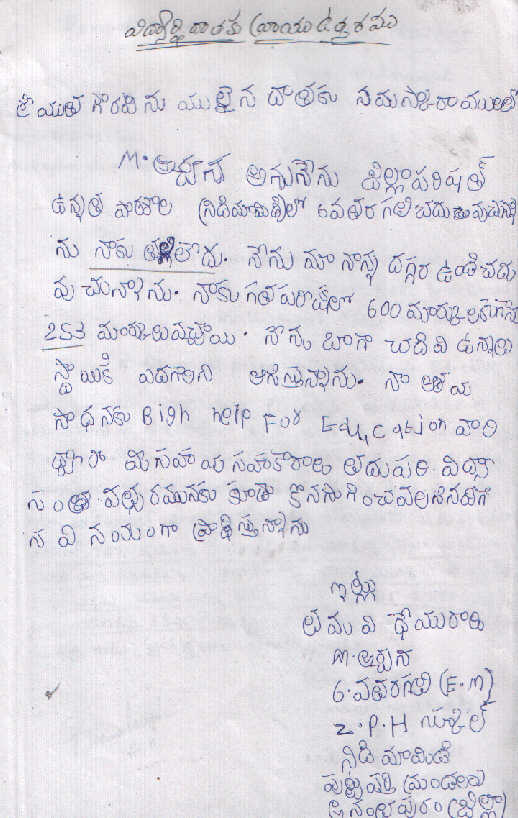 విద్యార్థి దాతకు వ్రాయు ఉత్తరము
శ్రీయుత గౌరవనీయులైన దాతకు నమస్కారములు
M. అర్చన అనునేను జిల్లాపరిషత్
ఉన్నత పాఠశాల (నిడిమామిడి)లో 6వతరగతి చదువుచున్నా
ను నాకు తల్లిలేదు. నేను మా నాన్న దగ్గర ఉండి చదు
వుచున్నాను. నాకు గతపరీక్షలో 600 మార్కులకుగాను
253 మార్కులువచ్చాయి. నేను బాగా చదివి ఉన్నత
స్థాయికి ఎదగాలని ఆశిస్తున్నాను. నా ఆశయ
సాధనకు Bigh help For Education వారి
ద్వారా మీ సహాయ సహకారాలు తదుపరి విద్యా
సంవత్సరమునకు కూడా కొనసాగించవలసినదిగా
సవినయంగా ప్రార్థిస్తున్నాను
ఇట్లు
తమ విధేయురాలు
M. అర్చన
6. వతరగతి (E.M)
Z.P.H స్కూల్
నిడిమామిడి
పుట్టపర్తి (మండలం)
అనంతపురం (జిల్లా)